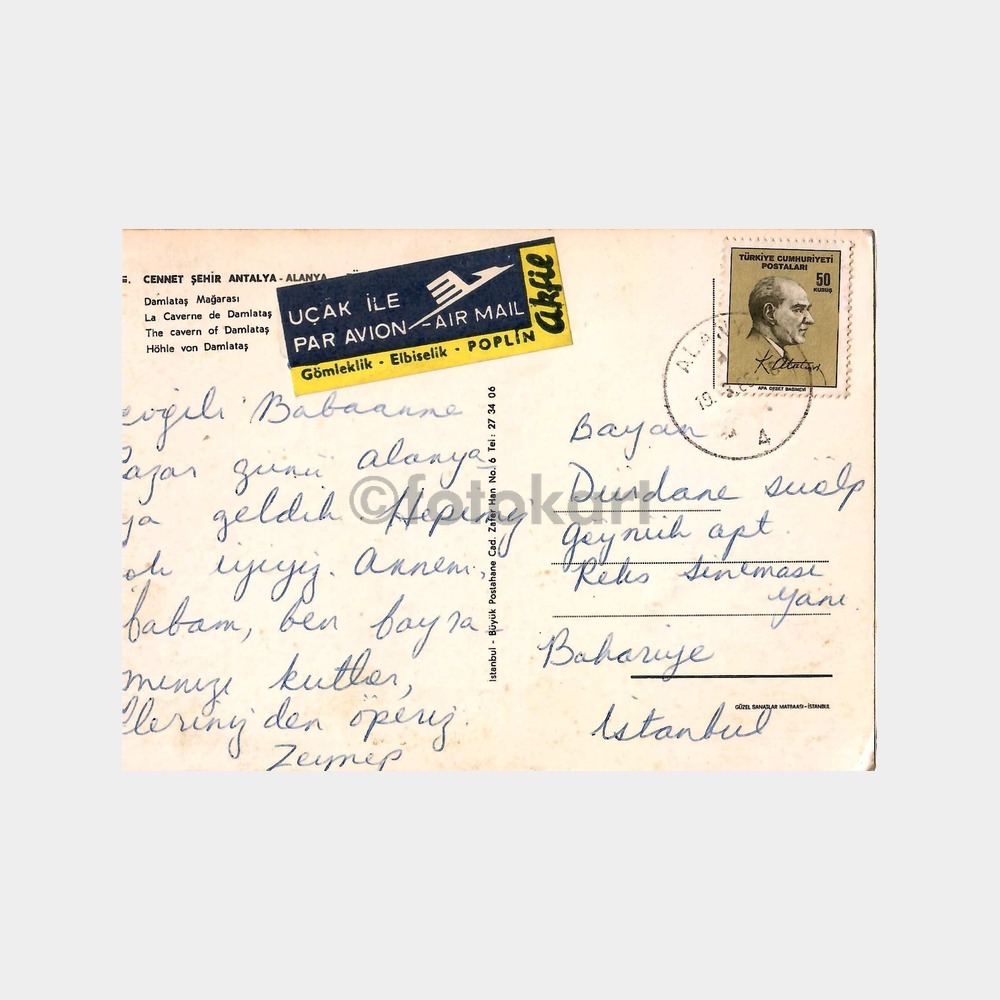 CENNET ŞEHİR ANTALYA - ALANYA
Damlataş Mağarası
La Caverne de Damlataş
The cavern of Damlataş
Höhle von Damlataş
UÇAK İLE
PAR AVION - AIR MAIL
Gömleklik - Elbiselik - POPLİN
Akfil
TÜRKİYE CUMHURİYETİ
POSTALARI
50
KURUŞ
K. Atatürk
APA OFSET BASIMEVİ
evgili Babaanne
azar günü alanya
ya geldik Hepimiz
ok iyiyiz. Annem,
babam, ben bayra
mınızı kutlar,
llerinizden öperiz.
Zeynep
İstanbul - Büyük Postahane Cad. Zafer Han No. 6 Tel : 27 34 06
Bayan
Dürdane süalp
apt.
Reks sineması
yanı.
Bahariye
istanbul
GÜZEL SANATLAR MATBAASI - İSTANBUL
©fotokart